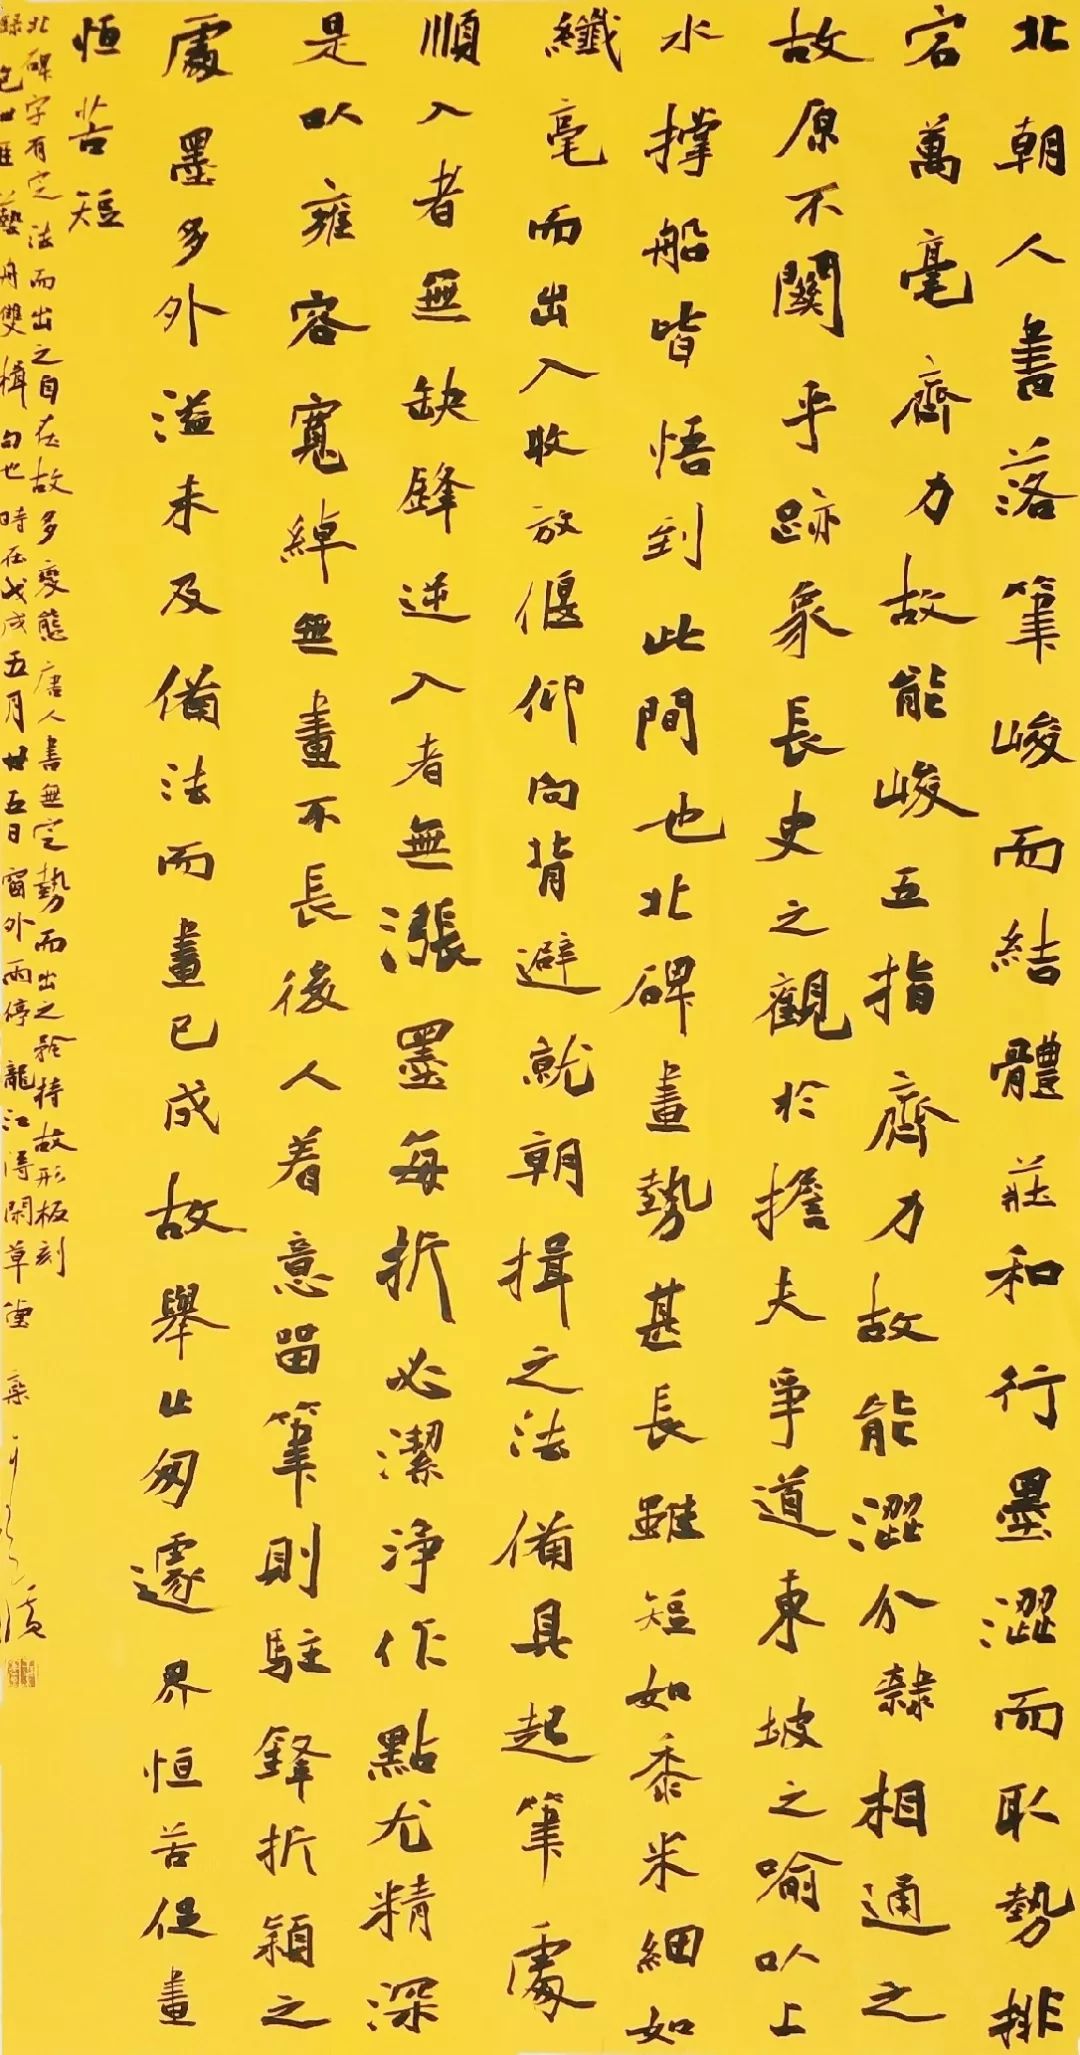 北朝人書落筆峻而結體莊和行墨澀而取勢排
宕萬毫齊力故能峻五指齊力故能澀分隸相通之
故原不關乎跡象長史之觀於擔夫爭道東坡之喻以上
水撐船皆悟到此間也北碑畫勢甚長雖短如黍米細如
纖毫而出入收放偃仰向背避就朝揖之法備具起筆處
順入者無缺鋒逆入者無漲墨每折必潔淨作點尤精深
是以雍容寬綽無畫不長後人着意留筆則駐鋒折穎之
處墨多外溢未及備法而畫已成故舉止匆遽界恒苦促畫
恒苦短
北碑字有定法而出之自在故多變態唐人書無定勢而出之矜持故形板刻
錄包世臣藝舟雙楫句也時在戊戌五月廿五日窗外雨停龍江得閑草堂